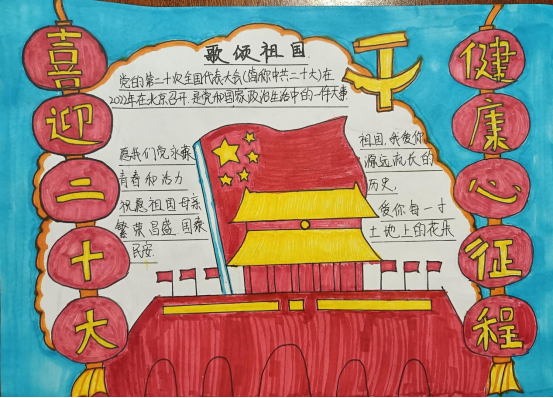 喜迎二十大
歌颂祖国
党的第二十次全国代表大会(简称中共二十大)在
2022年在北京召开.是党和国家政治生活中的一件大事.
愿我们党永葆
青春和活力
祝愿祖国母亲
繁荣昌盛 国泰
民安.
祖国,我爱你
源远流长的
历史,
爱你每一寸
土地上的花朵
健康心征程